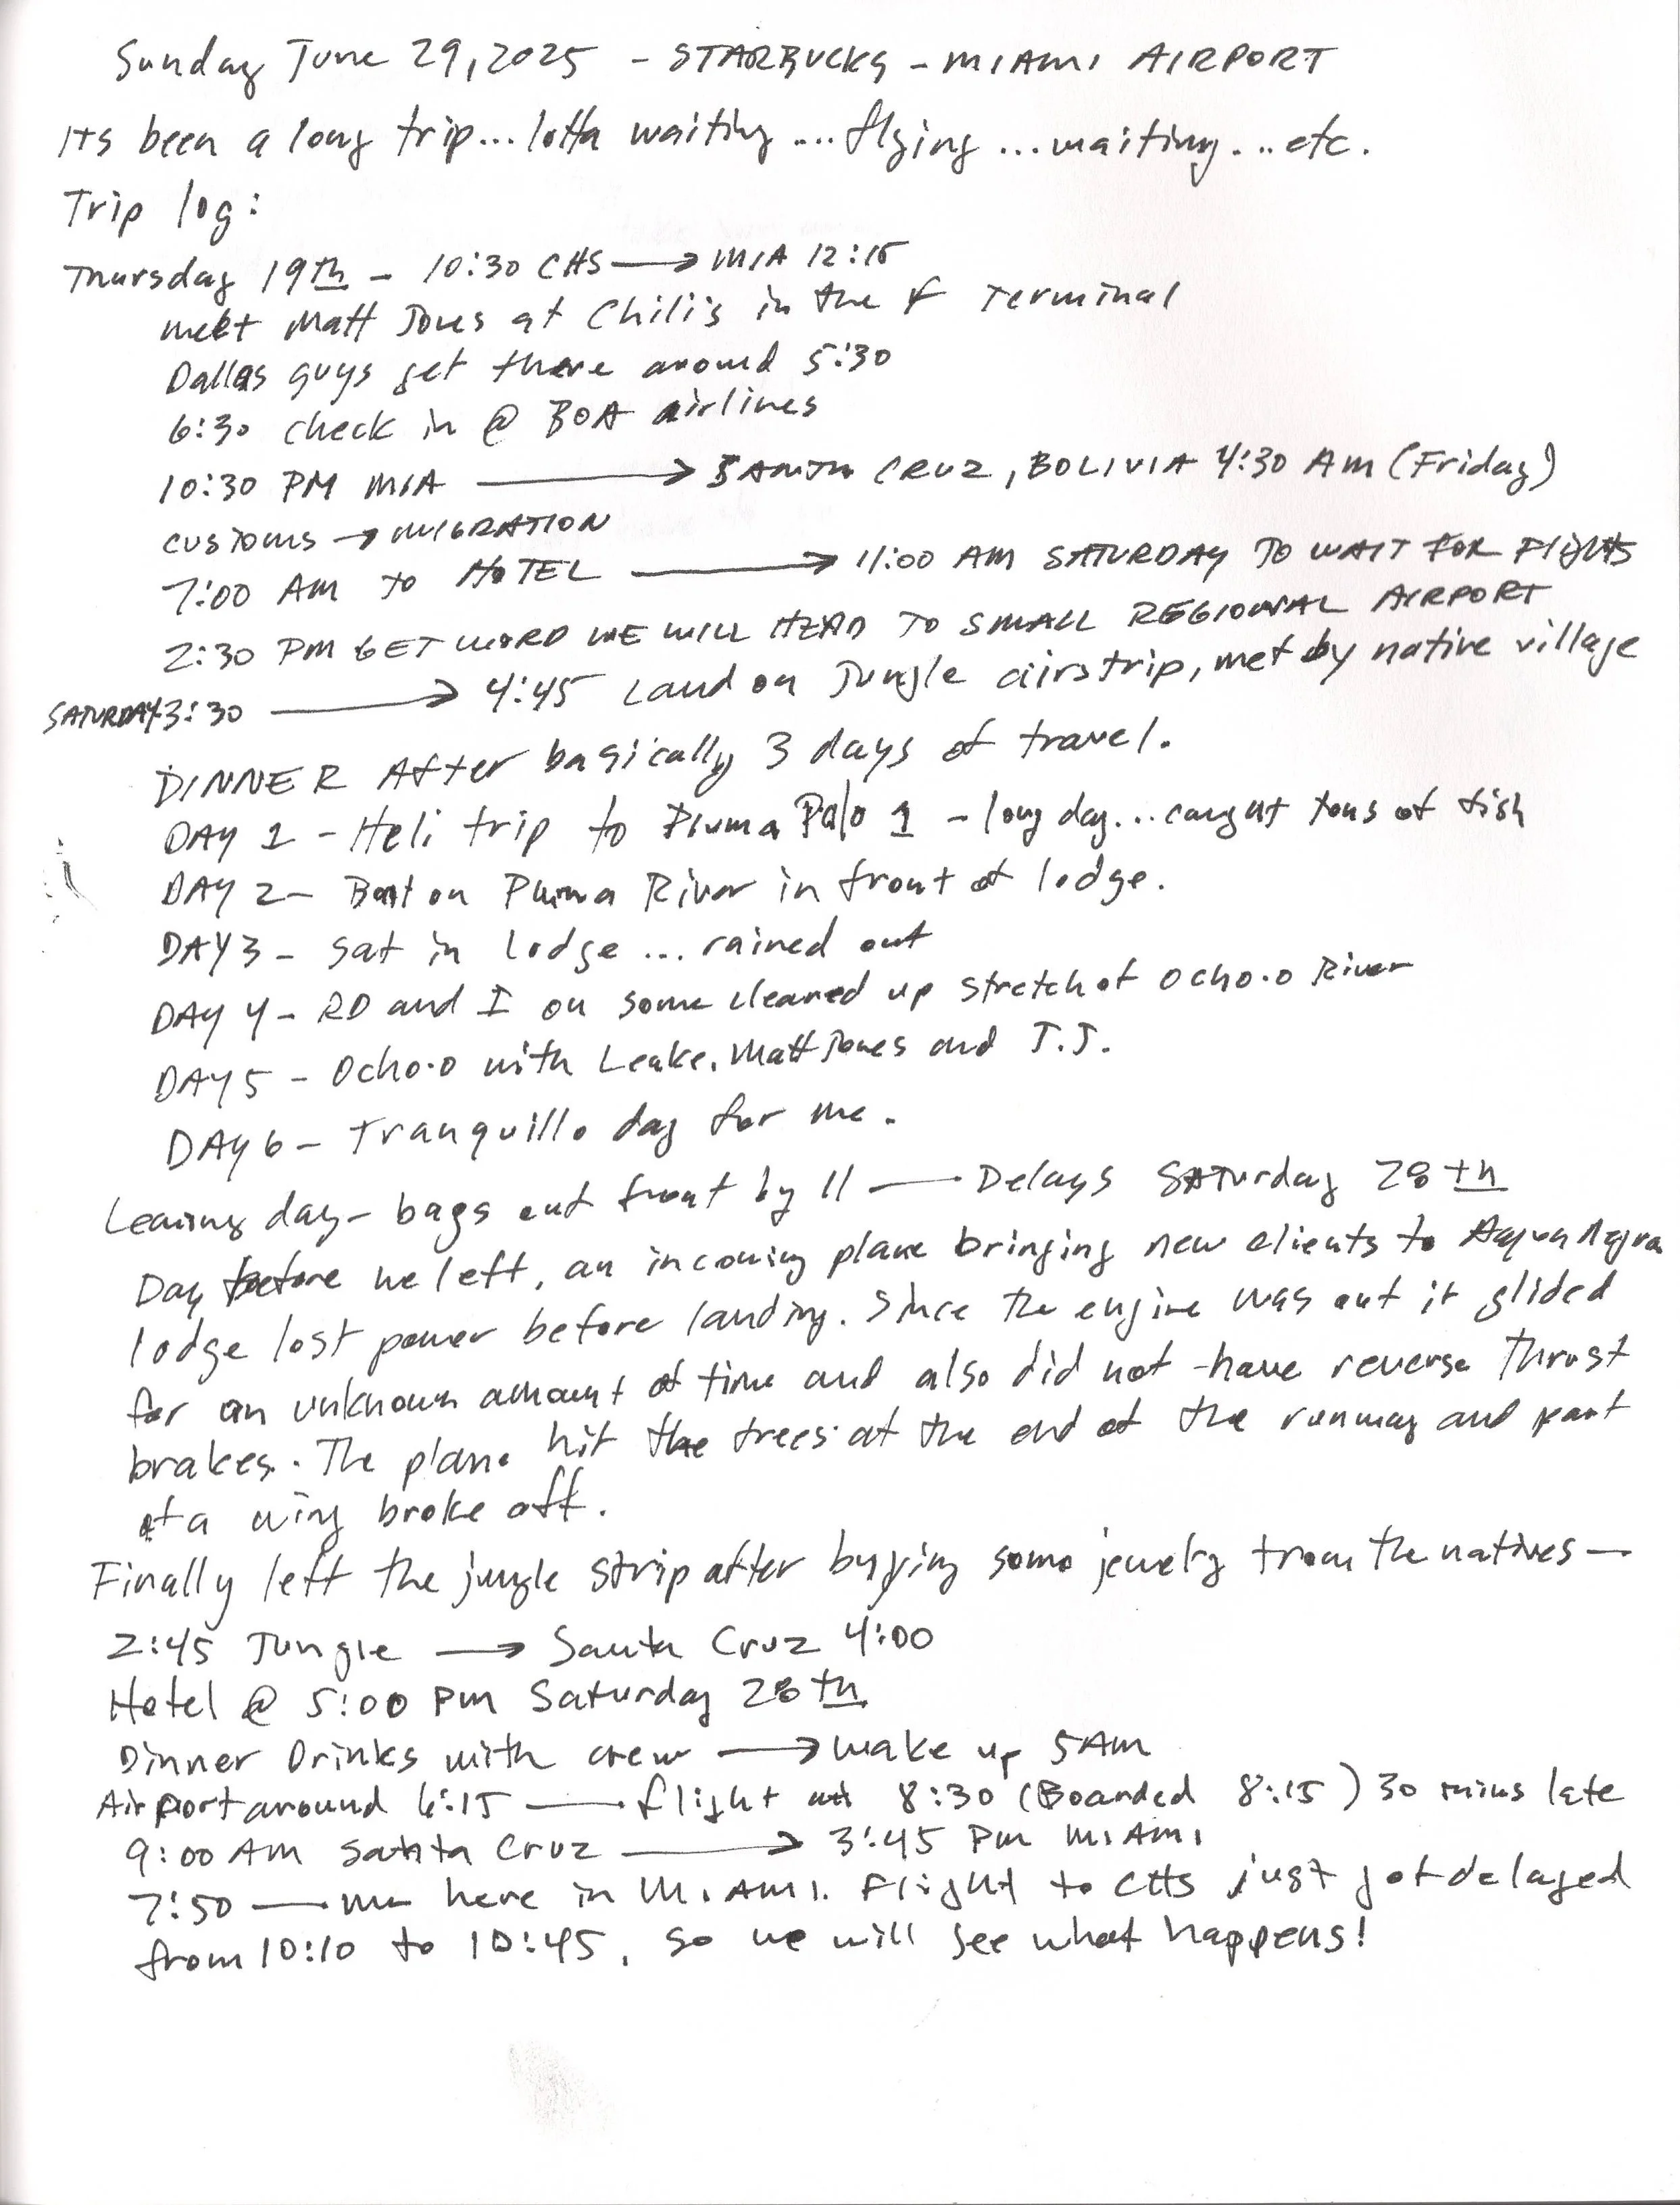 Sunday June 29, 2025 - STARBUCKS - MIAMI AIRPORT
Its been a long trip... lotta waiting .... flying ... waiting... etc.
Trip log:
Thursday 19th - 10:30 CHS → MIA 12:15
meet Matt Jones at Chili's in the F Terminal
Dallas guys get there around 5:30
6:30 check in @ BOA airlines
10:30 PM MIA → SANTA CRUZ, BOLIVIA 4:30 AM (Friday)
CUSTOMS → MIGRATION
7:00 AM to HOTEL → 11:00 AM SATURDAY TO WAIT FOR Flights
2:30 PM GET WORD WE WILL HEAD TO SMALL REGIONAL AIRPORT
SATURDAY 3:30 → 4:45 Land on Jungle airstrip, met by native village
DINNER After basically 3 days of travel.
DAY 1 - Heli trip to Pluma Palo 1 - long day... caught tons of fish
DAY 2 - Boat on Pluma River in front of lodge.
DAY 3 - Sat in lodge ... rained out
DAY 4 - RD and I on some cleared up stretch of Ocho.o River
DAY 5 - Ocho.o with Leake, Matt Jones and T.J.
DAY 6 - Tranquillo day for me.
Leaving day - bags out front by 11 — Delays SATurday 28th
Day before we left, an incoming plane bringing new clients to Agua Agua
lodge lost power before landing. Since the engine was out it glided
for an unknown amount of time and also did not have reverse thrust
brakes. The plane hit the trees at the end of the runway and part
of a wing broke off.
Finally left the jungle strip after buying some jewelry from the natives —
2:45 Jungle → Santa Cruz 4:00
Hotel @ 5:00 PM Saturday 28th
Dinner Drinks with crew → wake up 5AM
Airport around 6:15 — flight at 8:30 (Boarded 8:15) 30 mins late
9:00 AM Santa Cruz → 3:45 PM MIAMI
7:50 — me here in MIAMI. Flight to CHS just got delayed
from 10:10 to 10:45, so we will see what happens!